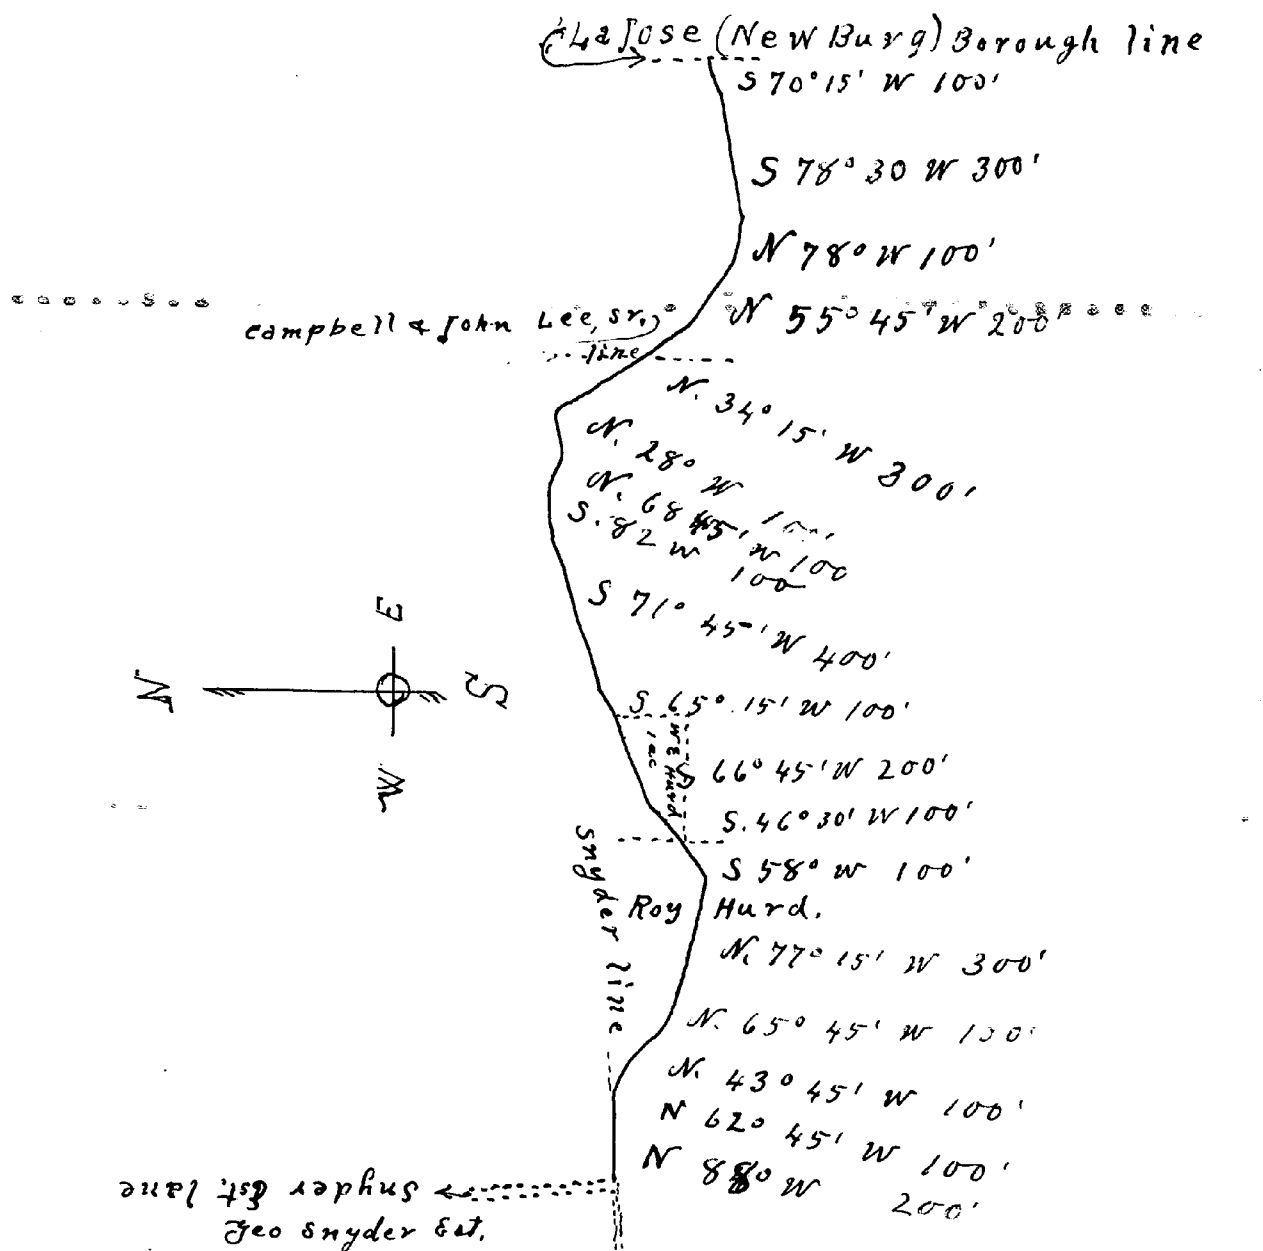 LaJose (New Burg) Borough line
S 70° 15' W 100'
S 78° 30 W 300'
N 78° W 100'
N 55° 45' W 200'
Campbell & John Lee, Sr.,
line
N. 34° 15' W 300'
N. 28° W 100'
N. 68 45' W 100
S. 82 W 100
S 71° 45' W 400'
E
N
S
W
S 65° 15' W 100'
W E Hurd
1 ac
S 66° 45' W 200'
S. 46° 30' W 100'
S 58° W 100'
Snyder line
Roy Hurd.
N. 77° 15' W 300'
N. 65° 45' W 100'
N. 43° 45' W 100'
N 62° 45' W 100'
N 88° W 200'
Snyder Est. lane
Geo Snyder Est.